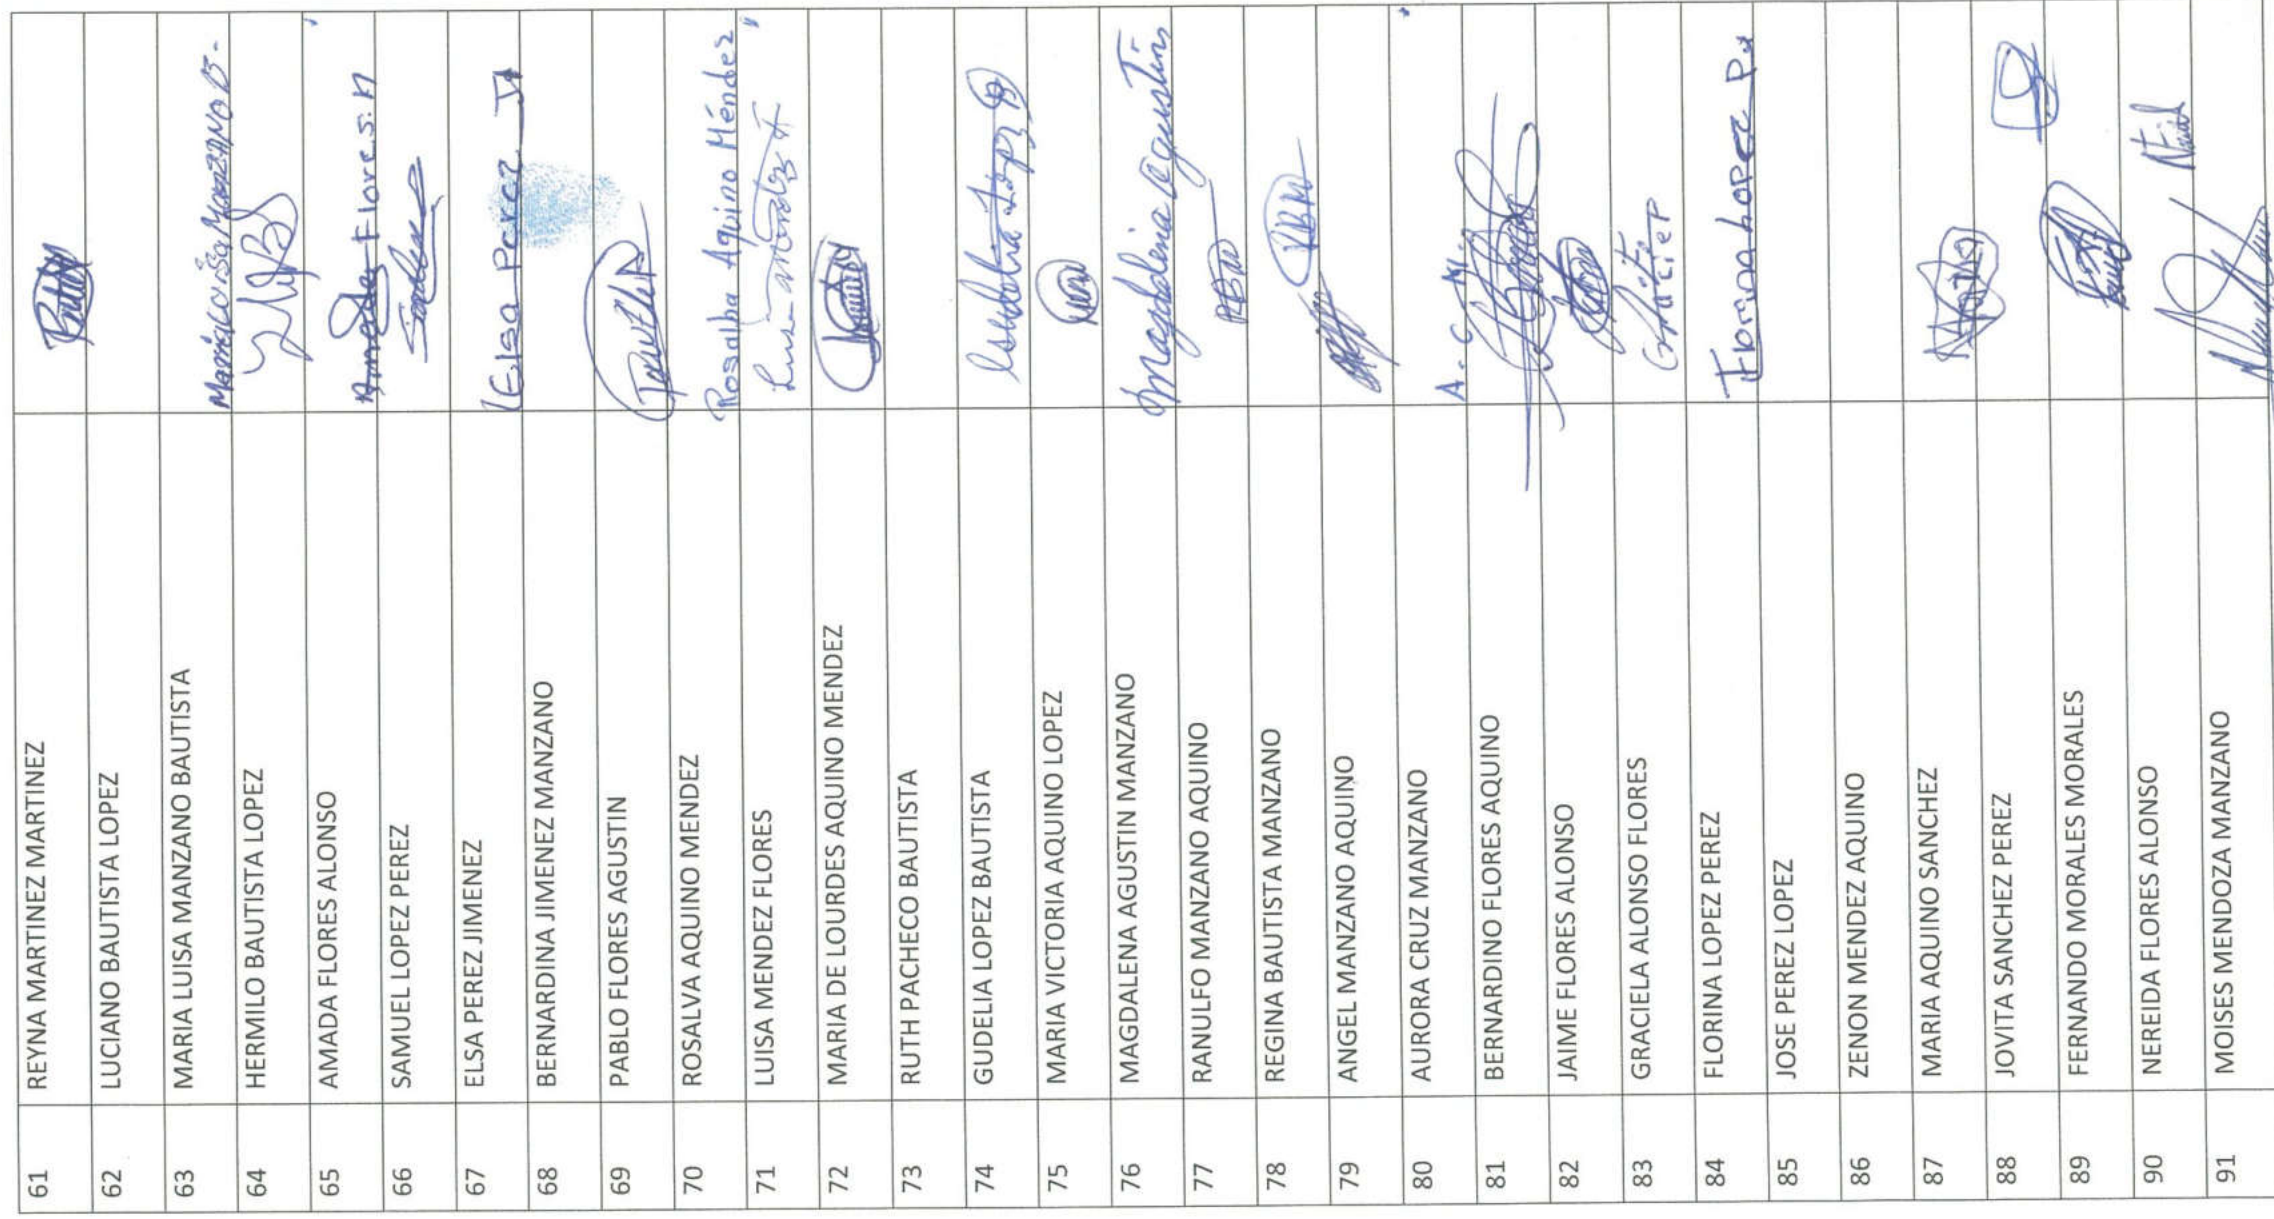 61 REYNA MARTINEZ MARTINEZ
62 LUCIANO BAUTISTA LOPEZ
63 MARIA LUISA MANZANO BAUTISTA María Luisa Manzano B.
64 HERMILO BAUTISTA LOPEZ
65 AMADA FLORES ALONSO Amada Flores.
66 SAMUEL LOPEZ PEREZ
67 ELSA PEREZ JIMENEZ Elsa Perez J
68 BERNARDINA JIMENEZ MANZANO
69 PABLO FLORES AGUSTIN
70 ROSALVA AQUINO MENDEZ Rosalba Aquino Méndez
71 LUISA MENDEZ FLORES Luisa
72 MARIA DE LOURDES AQUINO MENDEZ
73 RUTH PACHECO BAUTISTA
74 GUDELIA LOPEZ BAUTISTA López B
75 MARIA VICTORIA AQUINO LOPEZ
76 MAGDALENA AGUSTIN MANZANO Magdalena Agustín
77 RANULFO MANZANO AQUINO
78 REGINA BAUTISTA MANZANO RBM
79 ANGEL MANZANO AQUINO
80 AURORA CRUZ MANZANO A. C M.
81 BERNARDINO FLORES AQUINO
82 JAIME FLORES ALONSO
83 GRACIELA ALONSO FLORES
84 FLORINA LOPEZ PEREZ Florina Lopez
85 JOSE PEREZ LOPEZ
86 ZENON MENDEZ AQUINO
87 MARIA AQUINO SANCHEZ
88 JOVITA SANCHEZ PEREZ
89 FERNANDO MORALES MORALES
90 NEREIDA FLORES ALONSO
91 MOISES MENDOZA MANZANO